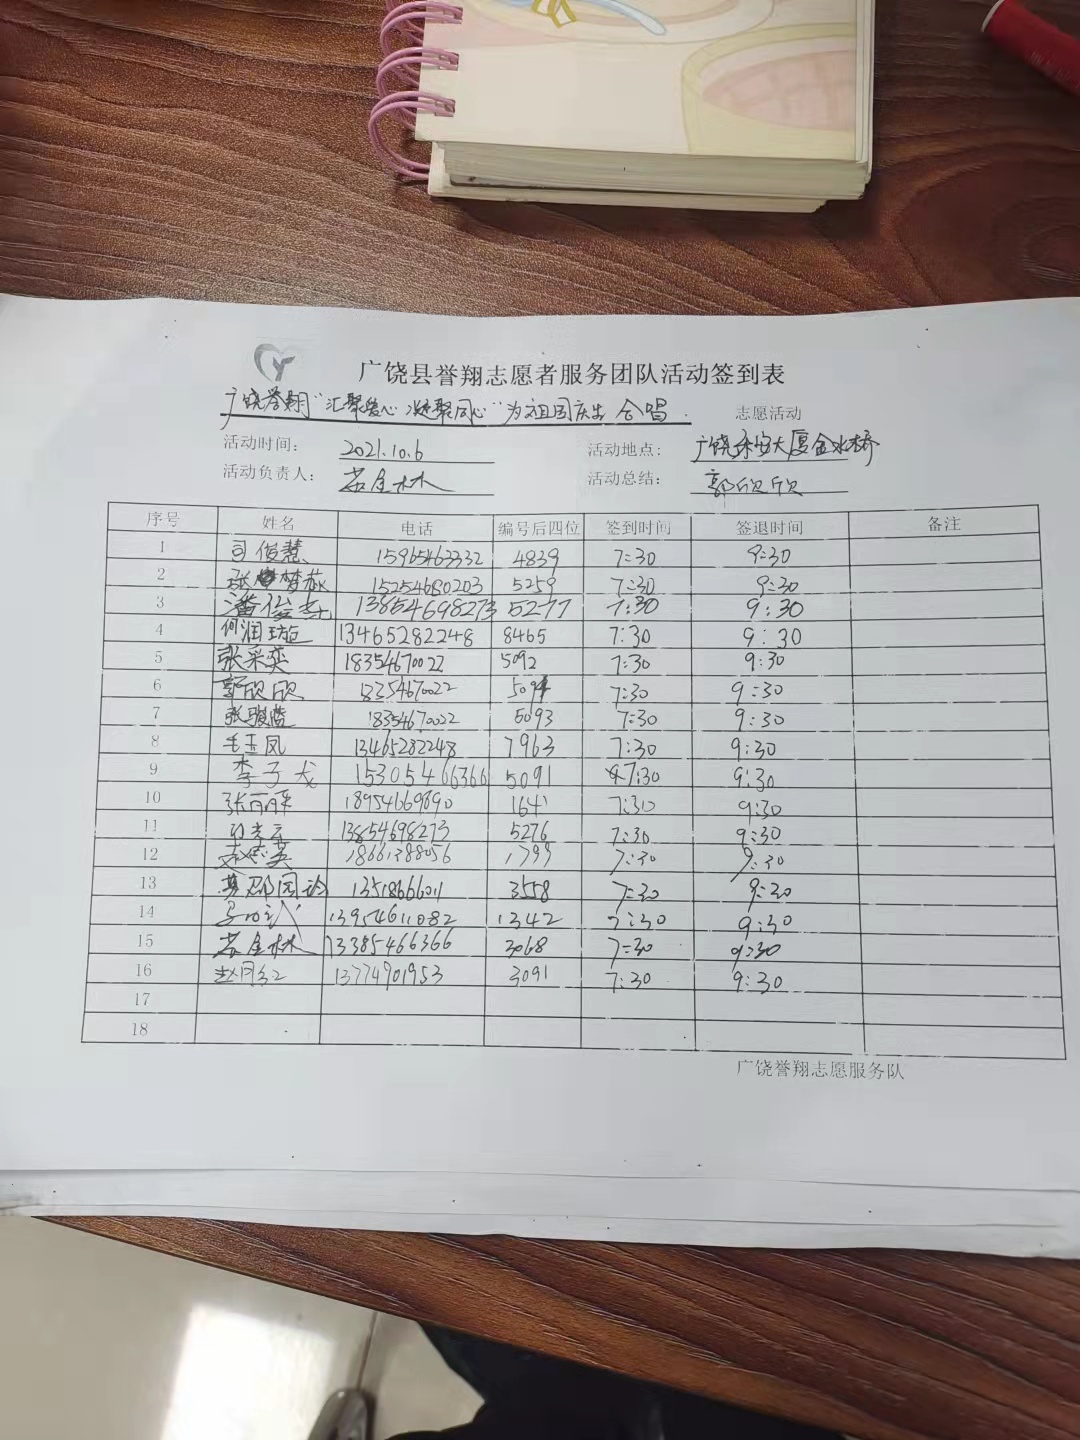 广饶县誉翔志愿者服务团队活动签到表
广饶誉翔"汇聚爱心 凝聚同心"为祖国庆生 合唱 志愿活动
活动时间： 2021.10.6 活动地点： 广饶乐安大厦金水桥
活动负责人： 苏金林 活动总结： 郭欣欣
序号 姓名 电话 编号后四位 签到时间 签退时间 备注
1 司俊慧 15965463332 4839 7:30 9:30
2 张梦 15254680203 5259 7:30 9:30
3 潘俊杰 13854698273 5277 7:30 9:30
4 何润 13465282248 8465 7:30 9:30
5 张采奕 18354670022 5092 7:30 9:30
6 郭欣欣 18354670022 509 7:30 9:30
7 张骏 18354670022 5093 7:30 9:30
8 毛玉凤 13465282248 7963 7:30 9:30
9 李子龙 15305466366 5091 7:30 9:30
10 张丽萍 18954669890 1641 7:30 9:30
11 13854698273 5276 7:30 9:30
12 英 18661388056 1799 7:30 9:30
13 邵园 13518666011 3558 7:30 9:30
14 13954611082 1342 7:30 9:30
15 苏金林 13385466366 3068 7:30 9:30
16 赵月红 13774901953 3091 7:30 9:30
17
18
广饶誉翔志愿服务队